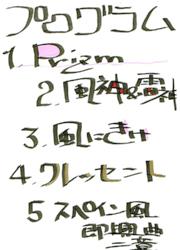 プログラム
1. Prizm
2. 風神&雷神
3. 風にきけ
4. クレッセント
5 スペイン風
即興曲
二章